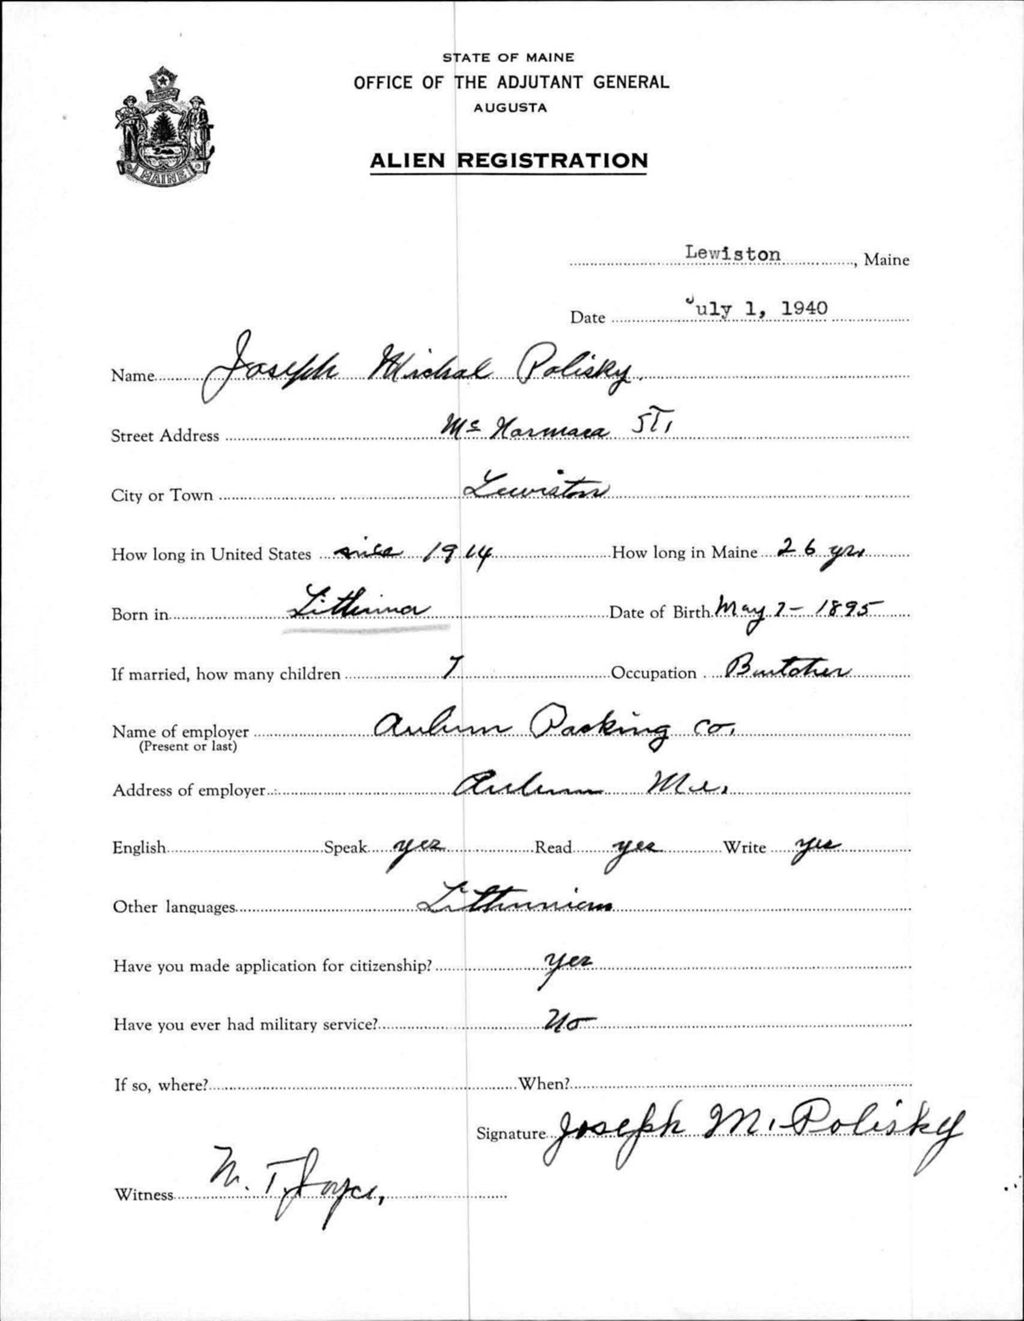 STATE OF MAINE
OFFICE OF THE ADJUTANT GENERAL
AUGUSTA
ALIEN REGISTRATION
MAINE
Lewiston, Maine
Date July 1, 1940
Name Joseph Michal Polisky.
Street Address Mc St,
City or Town Lewiston
How long in United States since 1914 How long in Maine 26 yrs
Born in Lithinna Date of Birth May 7- 1895
If married, how many children 7 Occupation Butcher
Name of employer Auburn Packing Co.
(Present or last)
Address of employer Auburn Me.
English Speak yes Read yes Write yes
Other languages Lithunian
Have you made application for citizenship? yes
Have you ever had military service? No
If so, where? When?
Signature Joseph M. Polisky
Witness T. Joyce,